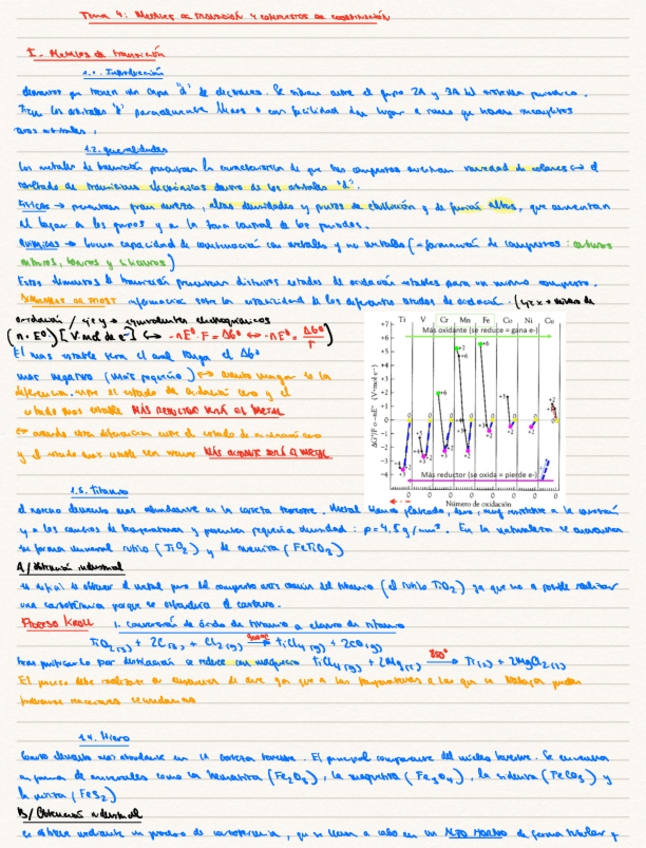 Tema 4: Metales de transición y compuestos de coordinación
I- Metales de transición
1.1. Introducción
elementos que tienen un capa "d" de electrones. Se sitúan entre el grupo 2A y 3A del sistema periodico.
Tienen los orbitales "d" parcialmente llenos o con facilidad dan lugar a iones que tienen incompletos
esos orbitales.
1.2. generalidades
Los metales de transición presentan la característica de que sus compuestos muestran variedad de colores ↔ el
resultado de transiciones electrónicas dentro de los orbitales "d".
Físicas → presentan gran dureza, altas densidades y puntos de ebullición y de fusión altos, que aumentan
al bajar a los grupos y a la zona central de los periodos.
Químicas → buena capacidad de combinación con metales y no metales (=formación de compuestos: carburos
nitruros, boruros y siliciuros)
Estos elementos de transición presentan distintos estados de oxidación estables para un mismo compuesto.
Diagramas de FROST información sobre la estabilidad de los diferentes estados de oxidación. (eje x → número de
oxidación / eje y → equivalentes electroquímicos
(n·E⁰) [V·mol de e⁻] ↔ -nE⁰·F = ΔG⁰ ↔ -nE⁰ = ΔG⁰/F)
El mas estable será el cual tenga el ΔG⁰
mas negativo (mas pequeño) ↔ cuanto mayor es la
diferencia entre el estado de oxidación cero y el
estado mas estable MÁS REDUCTOR SERÁ EL METAL
↔ cuando esta diferencia entre el estado de oxidación cero
y el estado mas estable sea menor MÁS OXIDANTE SERÁ EL METAL
Ti V Cr Mn Fe Co Ni Cu
Más oxidante (se reduce = gana e-)
ΔG⁰/F o -nE⁰ (V·mol e⁻)
Más reductor (se oxida = pierde e-)
Número de oxidación
1.3. Titanio
el noveno elemento mas abundante en la corteza terrestre. Metal blanco plateado, duro, muy resistente a la corrosión
y a los cambios de temperaturas y presenta pequeña densidad: ρ=4,5 g/mm³. En la naturaleza se encuentra
en forma mineral rutilo (TiO₂) y de ilmenita (FeTiO₂)
A/ Obtención industrial
es difícil obtener el metal puro del compuesto más común del titanio (el rutilo TiO₂) ya que no es posible realizar
una carbotermia porque se obtendría el carburo.
Proceso Kroll 1. Conversión de óxido de titanio a cloruro de titanio
TiO₂(s) + 2C(s) + Cl₂(g) → TiCl₄(g) + 2CO(g)
tras purificarlo por destilación se reduce con magnesio TiCl₄(g) + 2Mg(l) 850° → Ti(s) + 2MgCl₂(l)
El proceso debe realizarse en ausencia de aire ya que a las temperaturas a las que se trabaja pueden
producirse reacciones secundarias
1.4. Hierro
Cuarto elemento mas abundante en la corteza terrestre. El principal componente del núcleo terrestre. Se encuentra
en forma de minerales como la hematita (Fe₂O₃), la magnetita (Fe₃O₄), la siderita (FeCO₃) y
la pirita (FeS₂)
B/ Obtención industrial
se obtiene mediante un proceso de carbotermia, que se lleva a cabo en un ALTO HORNO de forma tubular y